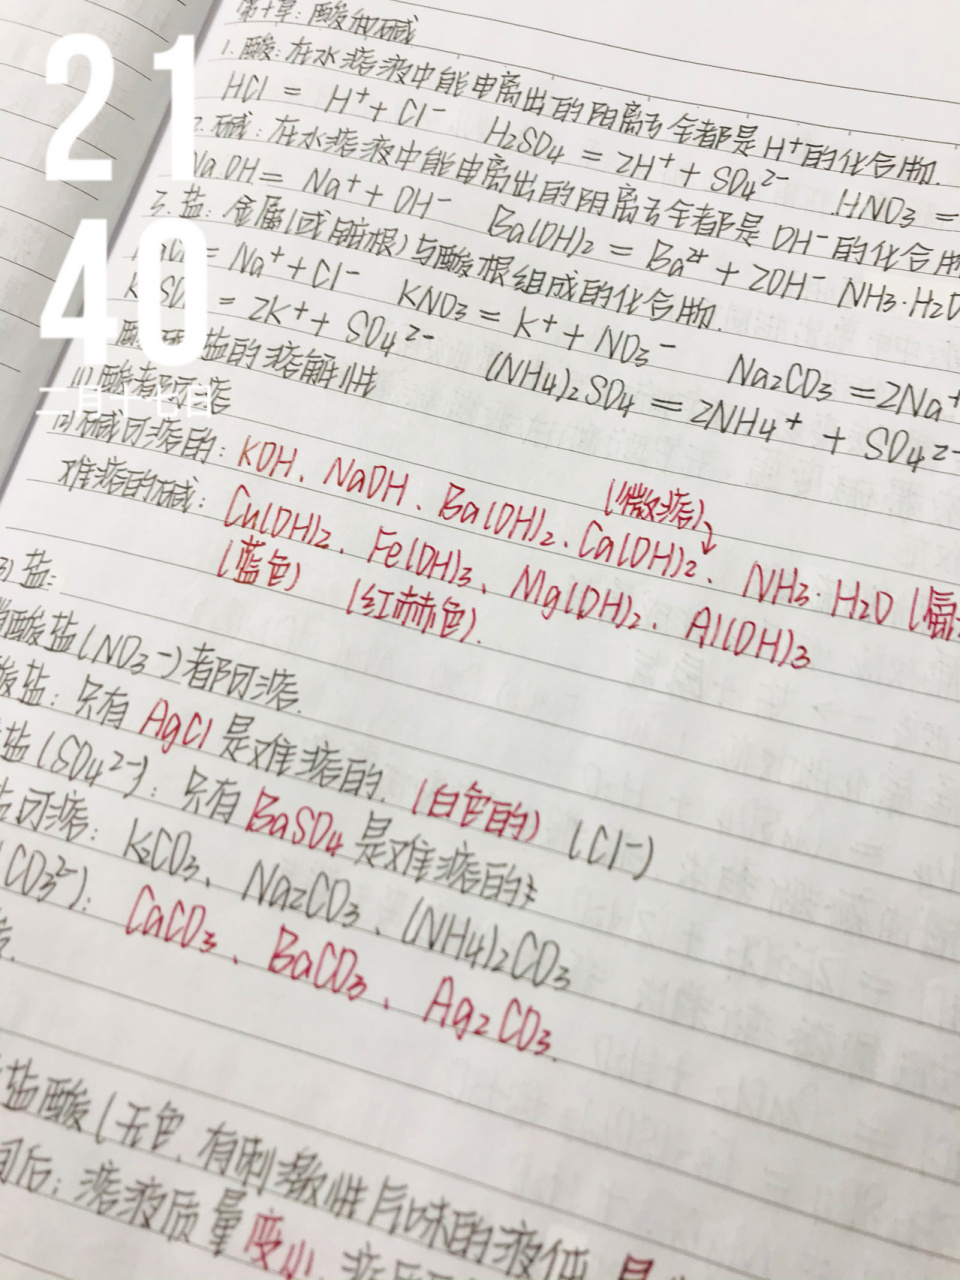 21
40
二月十七日
第十章：酸和碱
1.酸：在水溶液中能电离出的阳离子全都是H⁺的化合物.
HCl = H⁺ + Cl⁻ H₂SO₄ = 2H⁺ + SO₄²⁻ HNO₃ =
2.碱：在水溶液中能电离出的阴离子全都是OH⁻的化合物
NaOH = Na⁺ + OH⁻ Ba(OH)₂ = Ba²⁺ + 2OH⁻ NH₃·H₂O
3.盐：金属(或铵根)与酸根组成的化合物.
NaCl = Na⁺ + Cl⁻ KNO₃ = K⁺ + NO₃⁻ Na₂CO₃ = 2Na⁺
K₂SO₄ = 2K⁺ + SO₄²⁻ (NH₄)₂SO₄ = 2NH₄⁺ + SO₄²⁻
酸碱盐的溶解性
(1)酸都可溶
(2)碱可溶的：KOH、NaOH、Ba(OH)₂、Ca(OH)₂、NH₃·H₂O
(微溶)
难溶的碱：Cu(OH)₂、Fe(OH)₃、Mg(OH)₂、Al(OH)₃
(蓝色) (红赫色).
(3)盐：
酸盐(NO₃⁻)都可溶.
酸盐：只有AgCl是难溶的.(白色的) (Cl⁻)
盐(SO₄²⁻)：只有BaSO₄是难溶的
可溶：K₂CO₃、Na₂CO₃、(NH₄)₂CO₃
(CO₃²⁻)：CaCO₃、BaCO₃、Ag₂CO₃.
盐酸(无色.有刺激性气味的液体.
后：溶液质量变小.